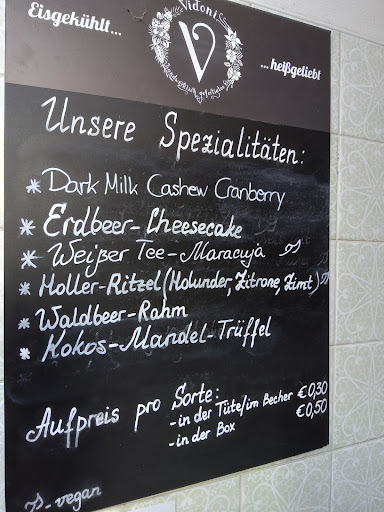 Eisgekühlt...
Vidoni
V
...heißgeliebt
Unsere Spezialitäten:
* Dark Milk Cashew Cranberry
* Erdbeer-Cheesecake
* Weißer Tee-Maracuja
* Holler-Ritzel (Holunder, Zitrone, Zimt)
* Waldbeer-Rahm
* Kokos-Mandel-Trüffel
Aufpreis pro Sorte:
- in der Tüte/im Becher €0,30
- in der Box €0,50
- vegan